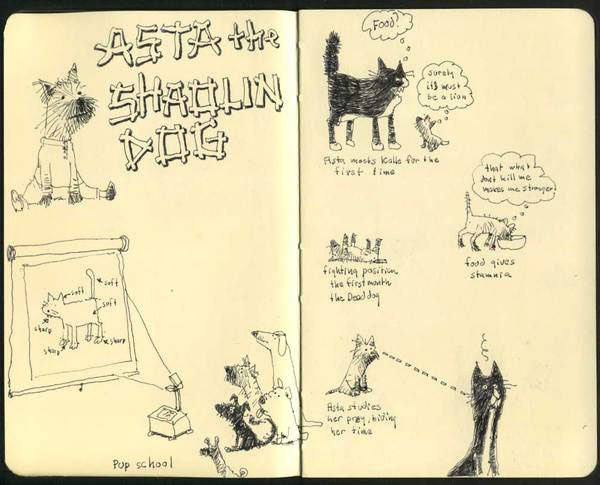 ASTA the
SHAOLIN
DOG
soft
soft
soft
sharp
sharp
sharp
Pup school
Food?
surely
it's must
be a lion
Asta meets Kalle for the
first time
that what
dont kill me
makes me stronger
food gives
stamnia
fighting position
the first month
the Dead dog
Asta studies
her pray, biding
her time